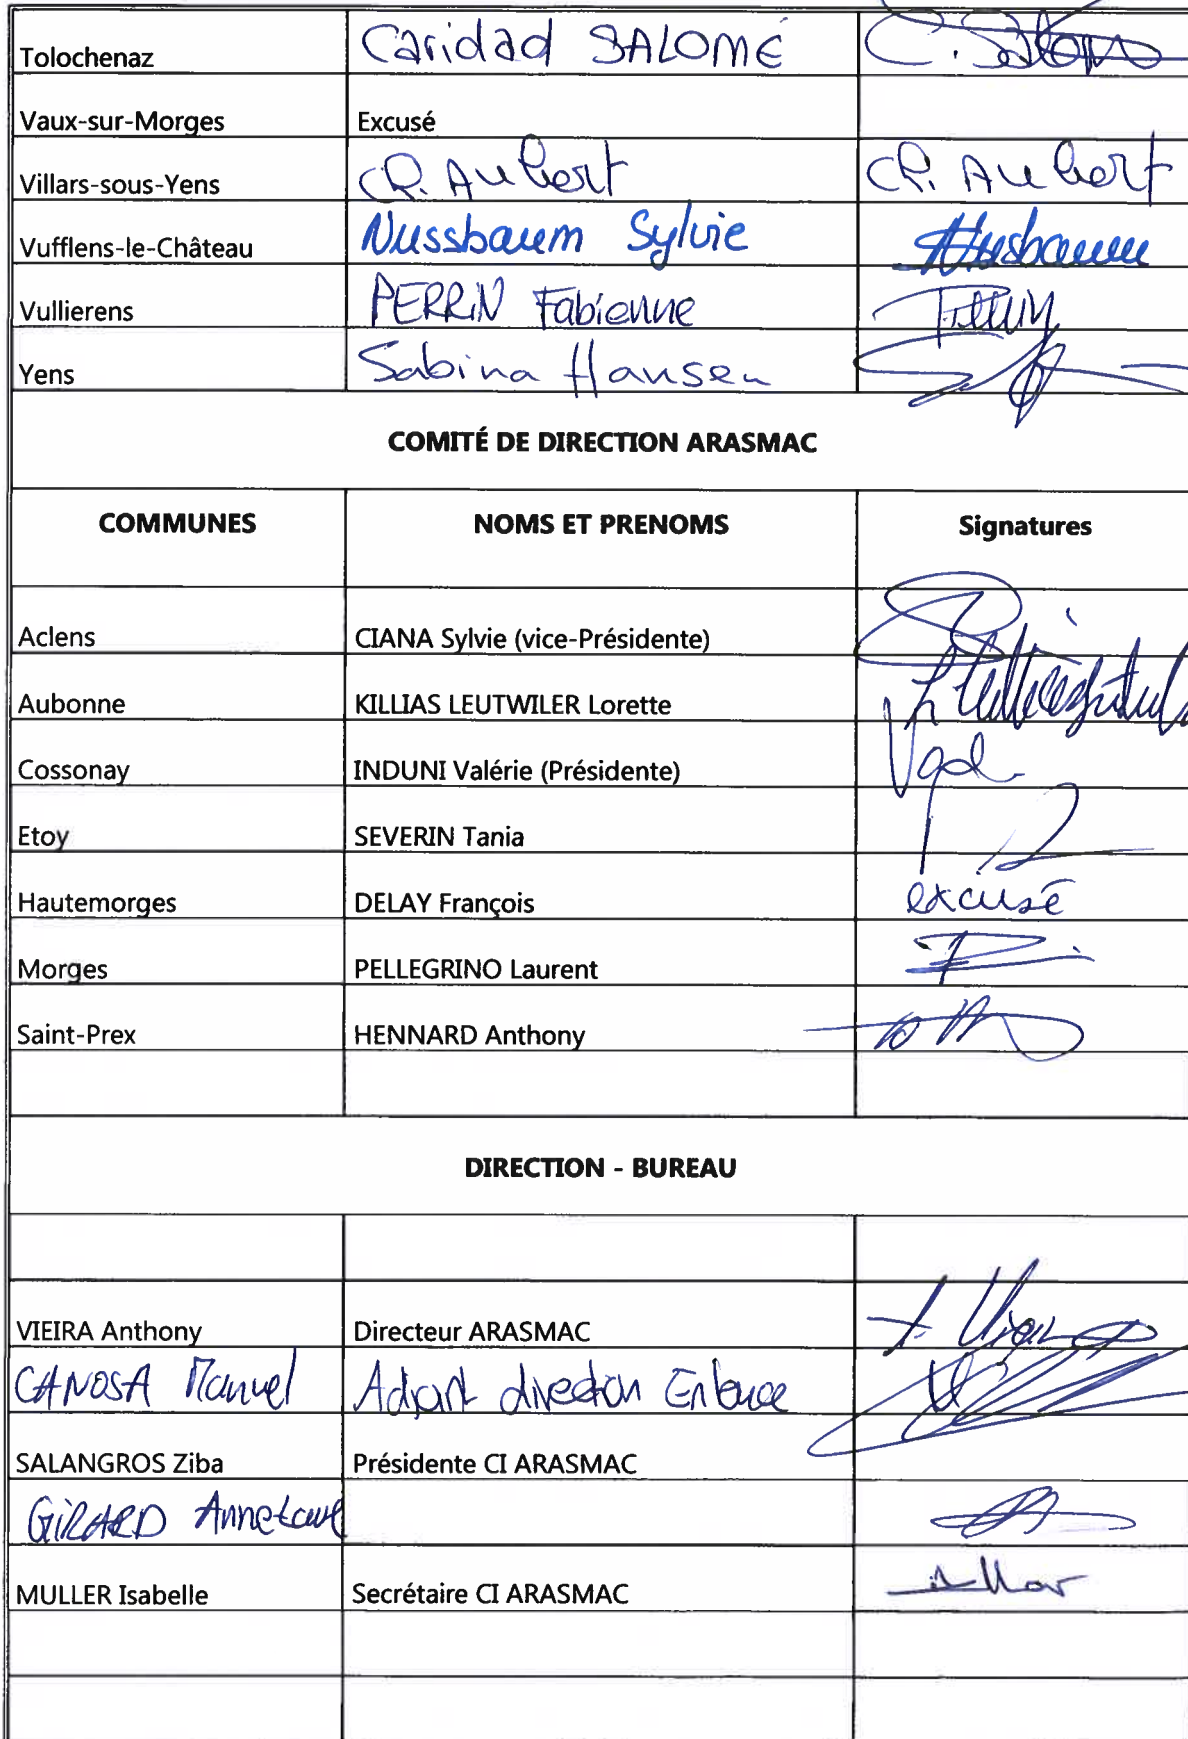 Tolochenaz Caridad SALOMÉ C. Salomé
Vaux-sur-Morges Excusé
Villars-sous-Yens Ch. Aubert Ch. Aubert
Vufflens-le-Château Nussbaum Sylvie Nusbaum
Vullierens PERRIN Fabienne
Yens Sabina Hansen
COMITÉ DE DIRECTION ARASMAC
COMMUNES NOMS ET PRENOMS Signatures
Aclens CIANA Sylvie (vice-Présidente)
Aubonne KILLIAS LEUTWILER Lorette
Cossonay INDUNI Valérie (Présidente)
Etoy SEVERIN Tania
Hautemorges DELAY François excusé
Morges PELLEGRINO Laurent
Saint-Prex HENNARD Anthony
DIRECTION - BUREAU
VIEIRA Anthony Directeur ARASMAC
CANOSA Manuel Adjoint direction Enfance
SALANGROS Ziba Présidente CI ARASMAC
GIRARD
MULLER Isabelle Secrétaire CI ARASMAC